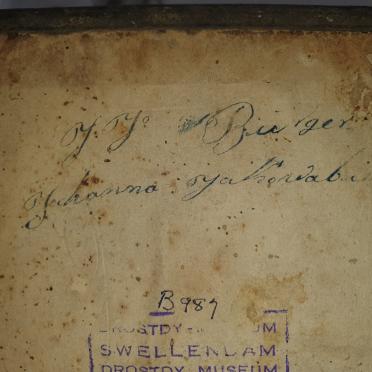 J. J. Burger
Johanna
B987
DROSTDY
SWELLENDAM
DROSTDY MUSEUM